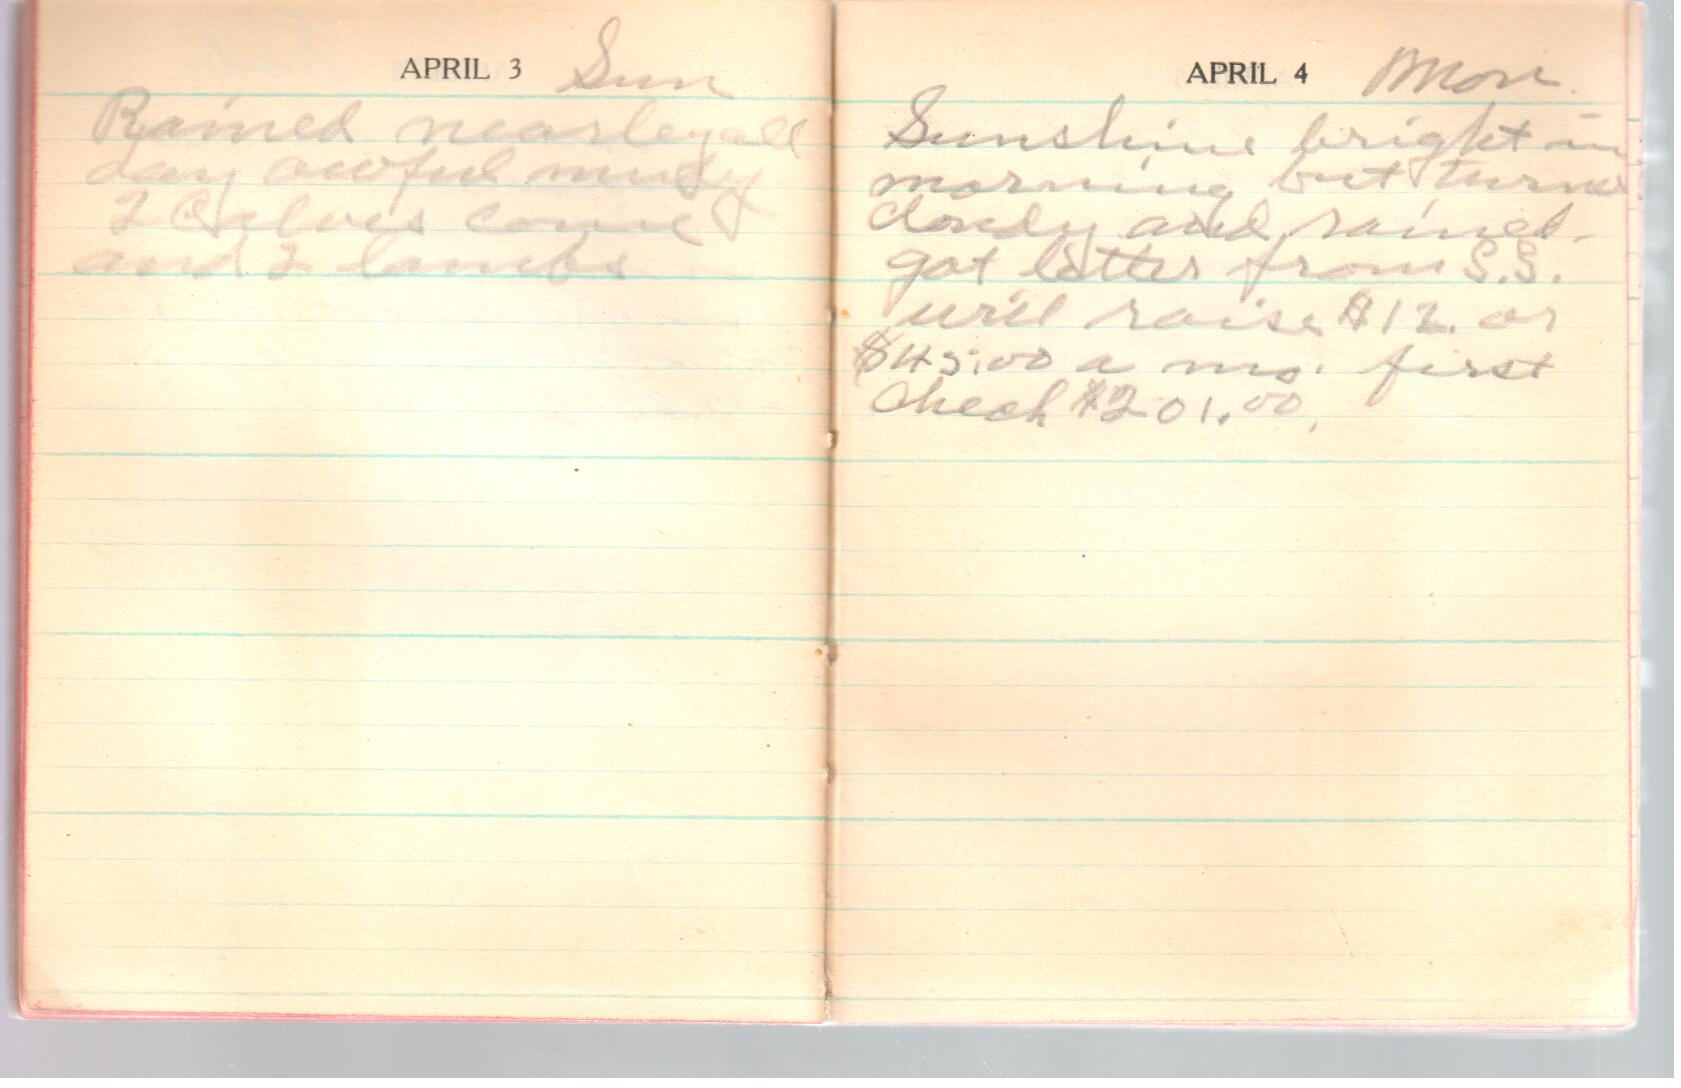 APRIL 3 Sun
Rained nearley all
day awful mudy
2 Calves come
and 2 lambs
APRIL 4 Mon.
Sunshine bright in
morning but turned
cloudy and rained.
got letter from S.S.
will raise $12. or
$45.00 a mo. first
check $201.00.